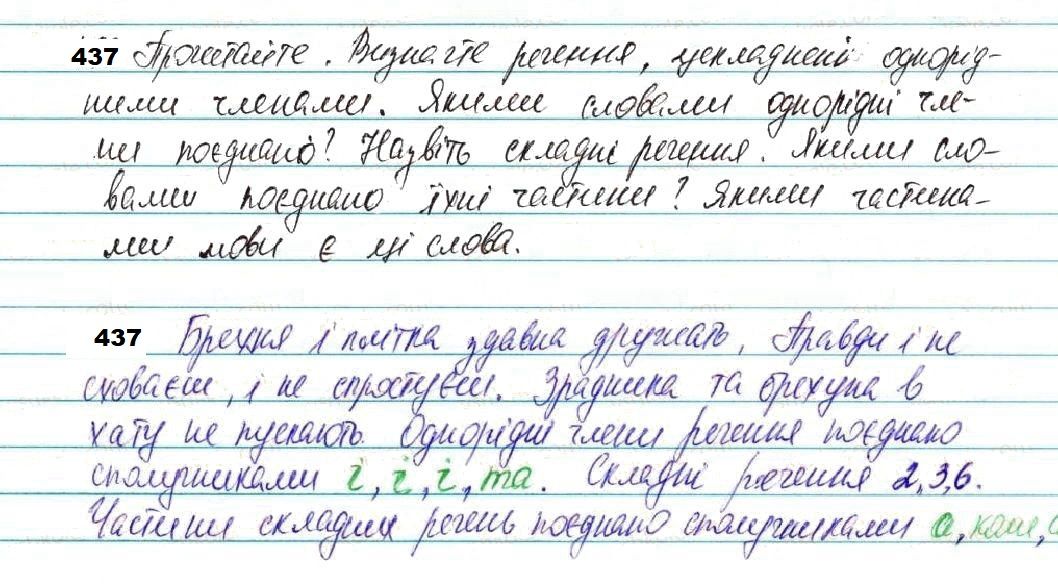 437 Прочитайте. Визначте речення, ускладнені однорід-
ними членами. Якими словами однорідні чле-
ни поєднано? Назвіть складні речення. Якими сло-
вами поєднано їхні частини? Якими частина-
ми мови є ці слова.
437 Брехня і плітка здавна дружать, Правди і не
сховаєш, і не спростуєш. Зрадника та брехуна в
хату не пускають. Однорідні члени речення поєднано
сполучниками і, і, і, та. Складні речення 2,3,6.
Частини складних речень поєднано сполучниками а, коли,